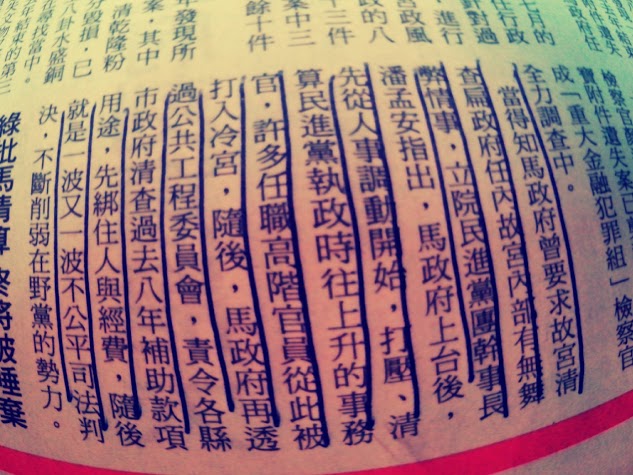 七月的
任行政
針對過
，進行
宮政風
政的八
十三件
案中三
餘十件
年發現所
案，其中
清乾隆粉
分毀損，已
尋找當中。
檢察官
寶附件遺失案已
成「重大金融犯罪組」檢察官
全力調查中。
當得知馬政府曾要求故宮清
查扁政府任內故宮內部有無舞
弊情事，立院民進黨團幹事長
潘孟安指出，馬政府上台後，
先從人事調動開始，打壓、清
算民進黨執政時往上升的事務
官，許多任職高階官員從此被
打入冷宮，隨後，馬政府再透
過公共工程委員會，責令各縣
市政府清查過去八年補助款項
用途，先綁住人與經費，隨後
就是一波又一波不公平司法判
決，不斷削弱在野黨的勢力。
綠批馬清算 終將被唾棄